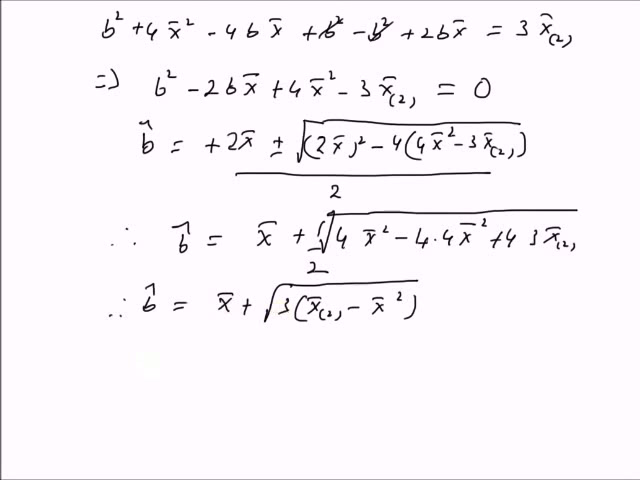 b² + 4x̄² - 4bx̄ + b² - b² + 2bx̄ = 3x̄₍₂₎
=> b² - 2bx̄ + 4x̄² - 3x̄₍₂₎ = 0
b̂ = +2x̄ ± √((2x̄)² - 4(4x̄² - 3x̄₍₂₎)) / 2
∴ b̂ = x̄ + 1/2 √(4x̄² - 4·4x̄² + 4 3x̄₍₂₎)
∴ b̂ = x̄ + √(3(x̄₍₂₎ - x̄²))